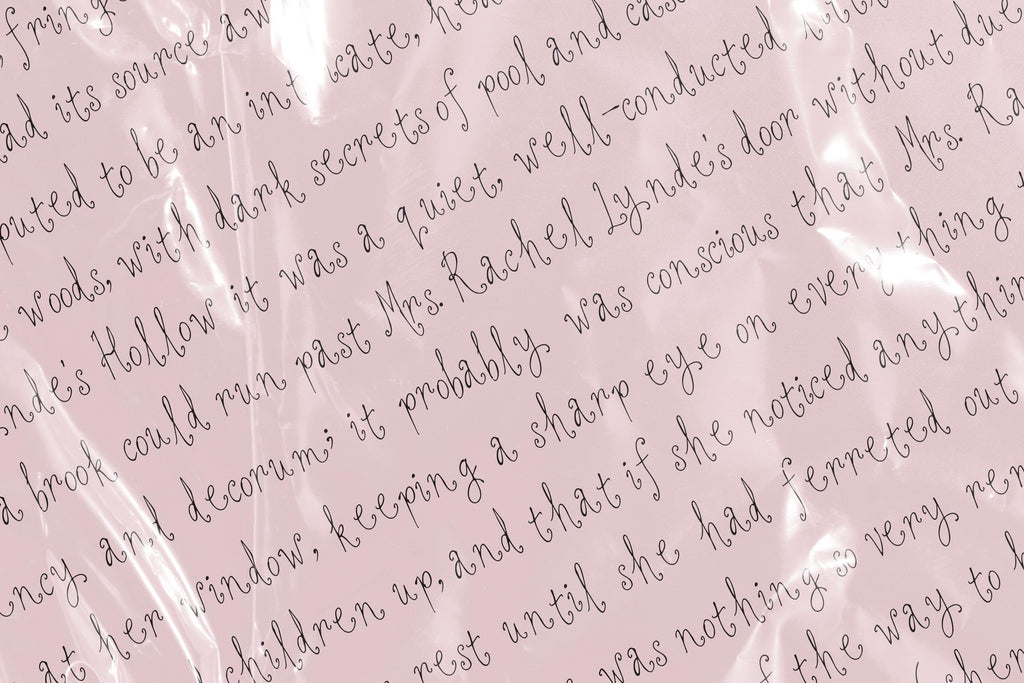 fring
ad its source aw
puted to be an int icate, hea
woods, with dark secrets of pool and cas
nde's Hollow it was a quiet, well-conducted
a brook could run past Mrs. Rachel Lynde's door without due
ency and decorum; it probably was conscious that Mrs. Ra
at her window, keeping a sharp eye on everything t
children up, and that if she noticed anythin
rest until she had ferreted out
was nothing so very rem
f the way to